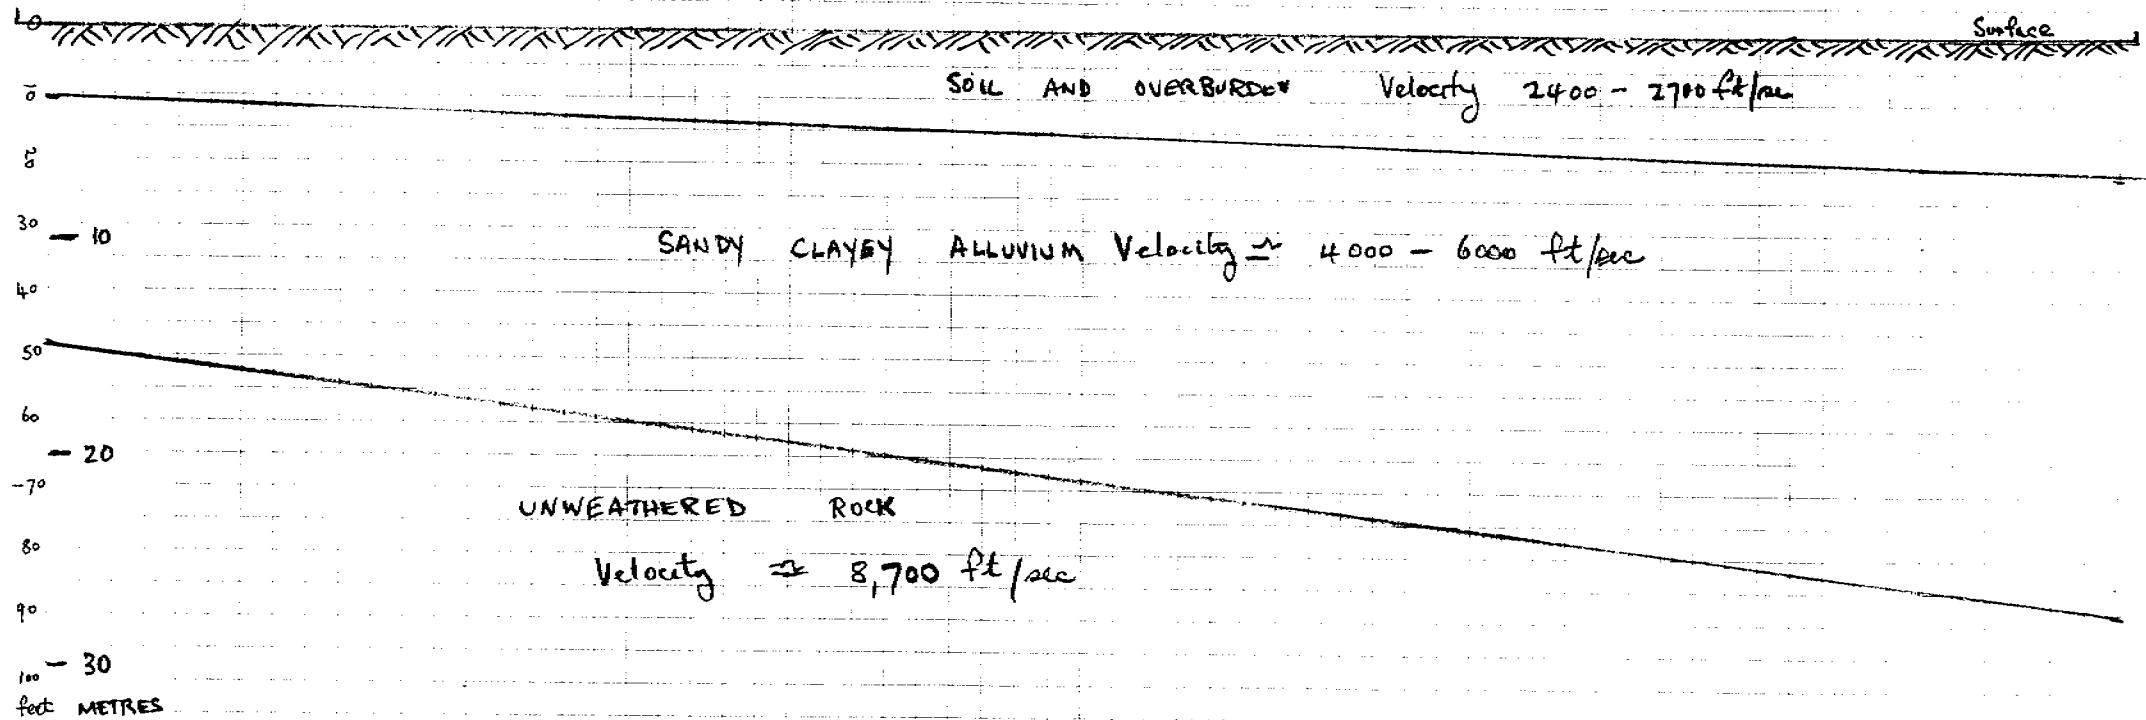 0
Surface
SOIL AND OVERBURDEN Velocity 2400 - 2700 ft/sec
10
20
30 — 10
SANDY CLAYEY ALLUVIUM Velocity ≃ 4000 - 6000 ft/sec
40
50
60
— 20
-70
UNWEATHERED ROCK
80
Velocity ≃ 8,700 ft/sec
90
100 — 30
feet METRES